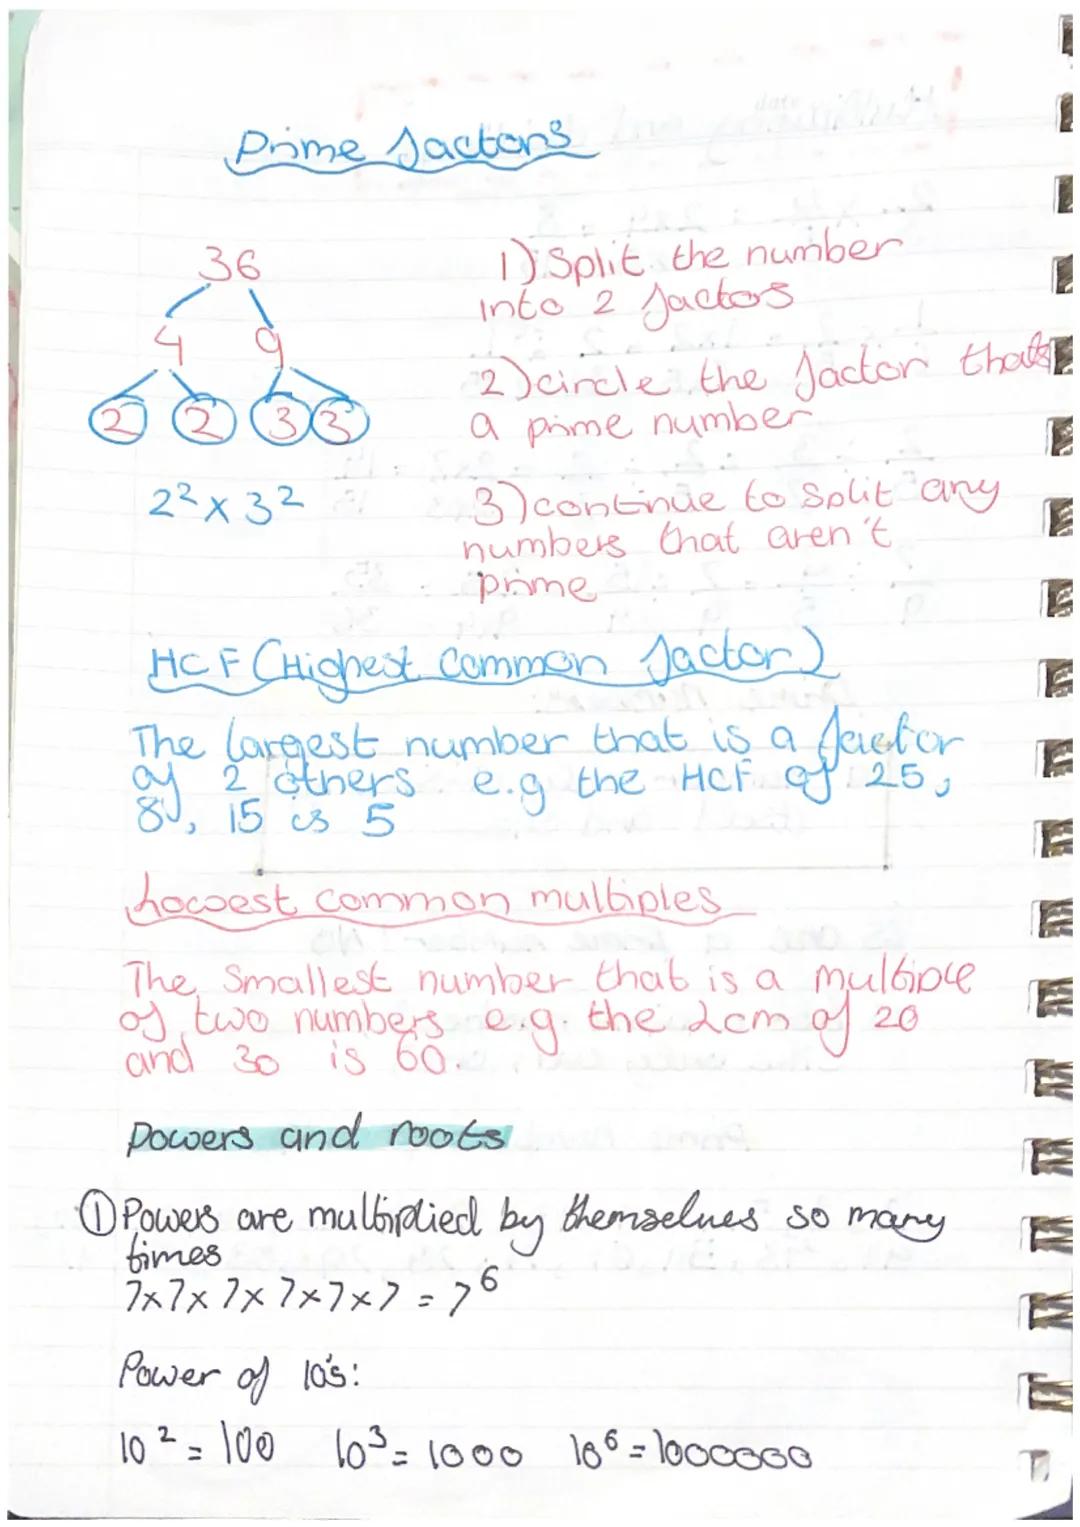 Prime factors
36
4 9
2 2 3 3
2² x 3²
1) Split the number
into 2 factors
2) circle the factor thats
a prime number
3) continue to split any
numbers that aren't
prime
HCF (Highest Common factor)
The largest number that is a factor
of 2 others e.g the HCF of 25,
80, 15 is 5
Lowest common multiples
The smallest number that is a multiple
of two numbers e.g the Lcm of 20
and 30 is 60.
Powers and roots
① Powers are multiplied by themselves so many
times
7x7x7x7x7x7 = 7⁶
Power of 10's:
10² = 100 10³ = 1000 10⁶ = 1000000